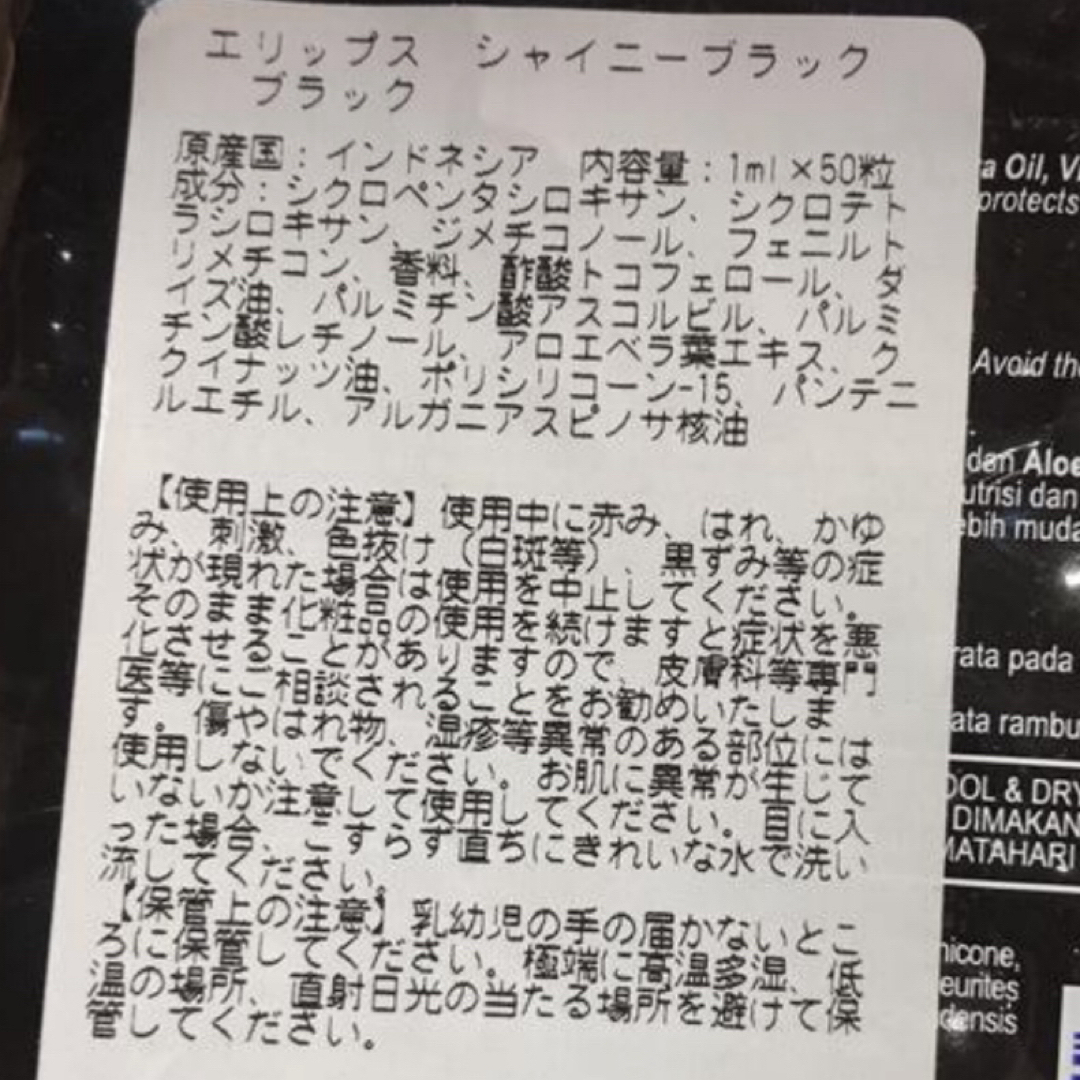 エリップス　シャイニーブラック
ブラック
原産国：インドネシア　内容量：1ml×50粒
成分：シクロペンタシロキサン、シクロテト
ラシロキサン、ジメチコノール、フェニルト
リメチコン、香料、酢酸トコフェロール、ダ
イズ油、パルミチン酸アスコルビル、パルミ
チン酸レチノール、アロエベラ葉エキス、ク
クイナッツ油、ポリシリコーン-15、パンテニ
ルエチル、アルガニアスピノサ核油
【使用上の注意】使用中に赤み、はれ、かゆ
み、刺激、色抜け（白斑等）、黒ずみ等の症
状が現れた場合は使用を中止してください。
そのまま化粧品の使用を続けますと症状を悪
化させることがありますので、皮膚科等専門
医等にご相談されることをお勧めいたしま
す。傷やはれ物、湿疹等異常のある部位には
使用しないでください。お肌に異常が生じて
いないか注意して使用してください。目に入
った場合、こすらず直ちにきれいな水で洗い
流してください。
【保管上の注意】乳幼児の手の届かないとこ
ろに保管してください。極端に高温多湿、低
温の場所、直射日光の当たる場所を避けて保
管してください。
a Oil, Vi
protects
Avoid the
dan Aloe
utrisi dan
ebih muda
rata pada
ata rambu
OOL & DRY
DIMAKAN
MATAHARI
nicone,
eurites
densis